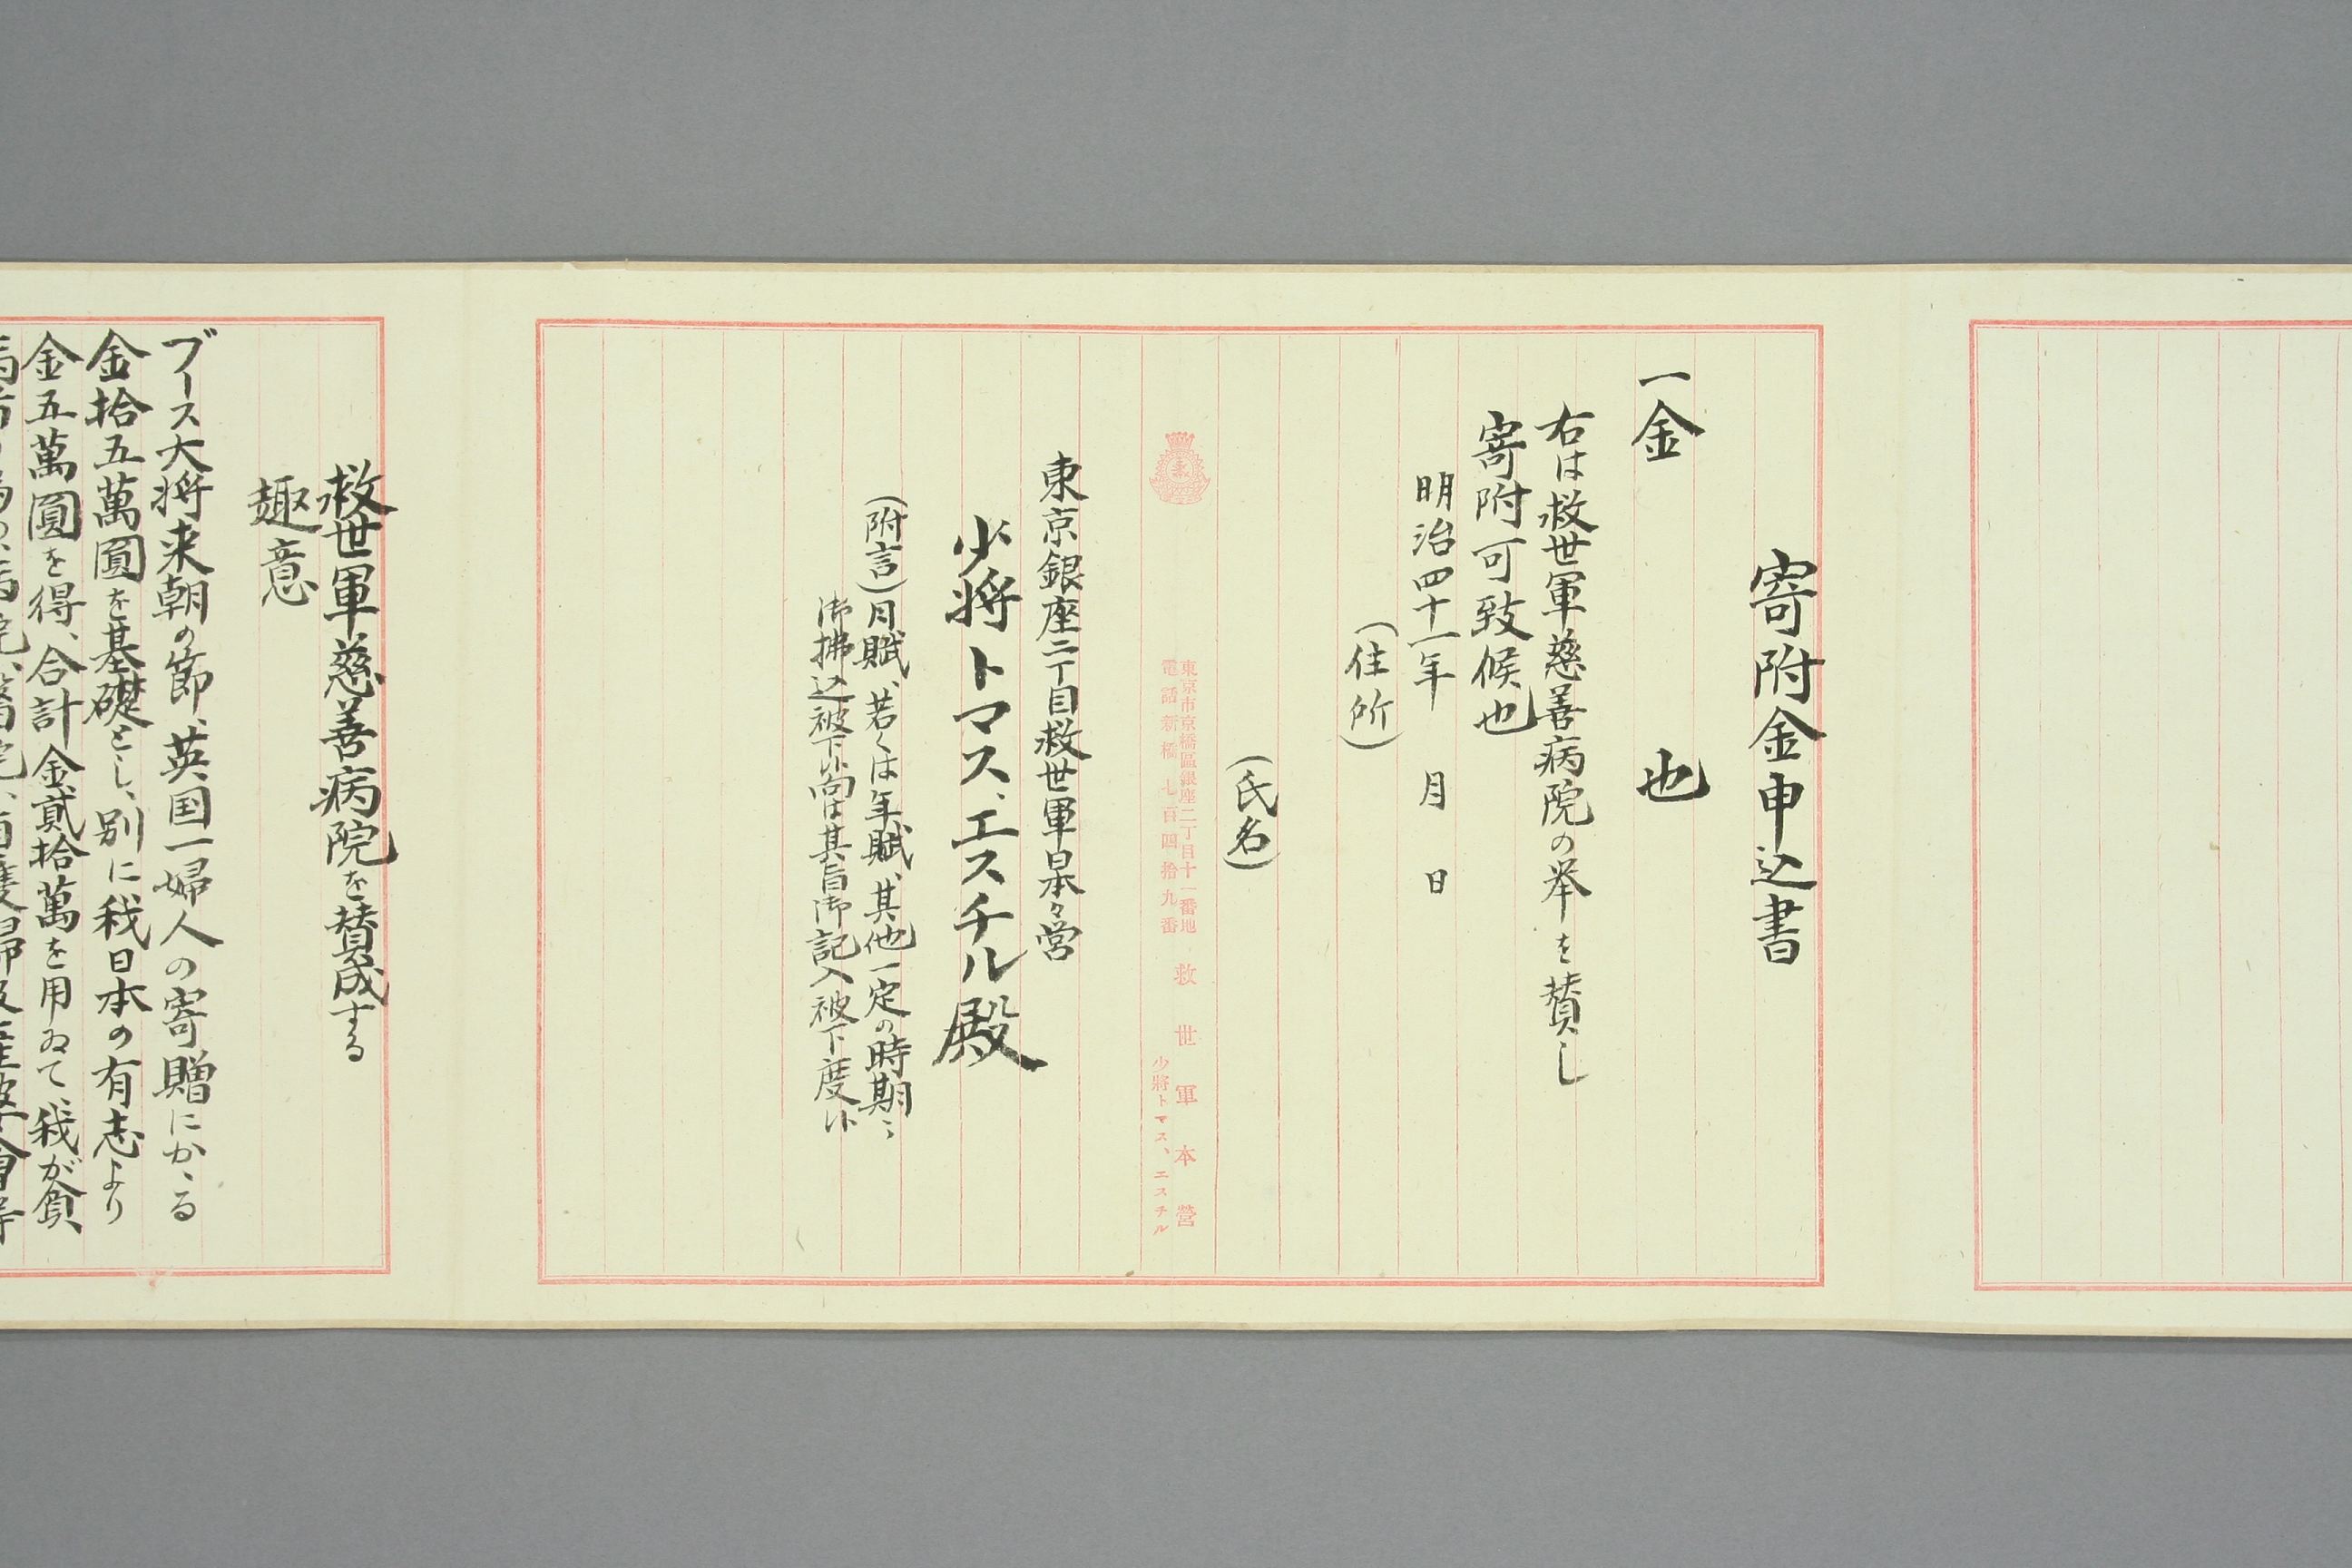 寄附金申込書
一金　　　　也
右は救世軍慈善病院の挙を賛し
寄附可致候也
明治四十一年　月　日
（住所）
（氏名）
東京市京橋區銀座二丁目十一番地　救世軍本營
電話新橋七百四拾九番　少將トマス、エスチル
東京銀座二丁目救世軍日本々営
少将トマス、エスチル殿
（附言）月賦、若くは年賦、其他一定の時期ニ
御拂込被下候向は其旨御記入被下度候
救世軍慈善病院を賛成する
趣意
ブース大将来朝の節、英国一婦人の寄贈にかゝる
金拾五萬圓を基礎とし、別に我日本の有志より
金五萬圓を得、合計金貳拾萬を用ゐて、我が貧